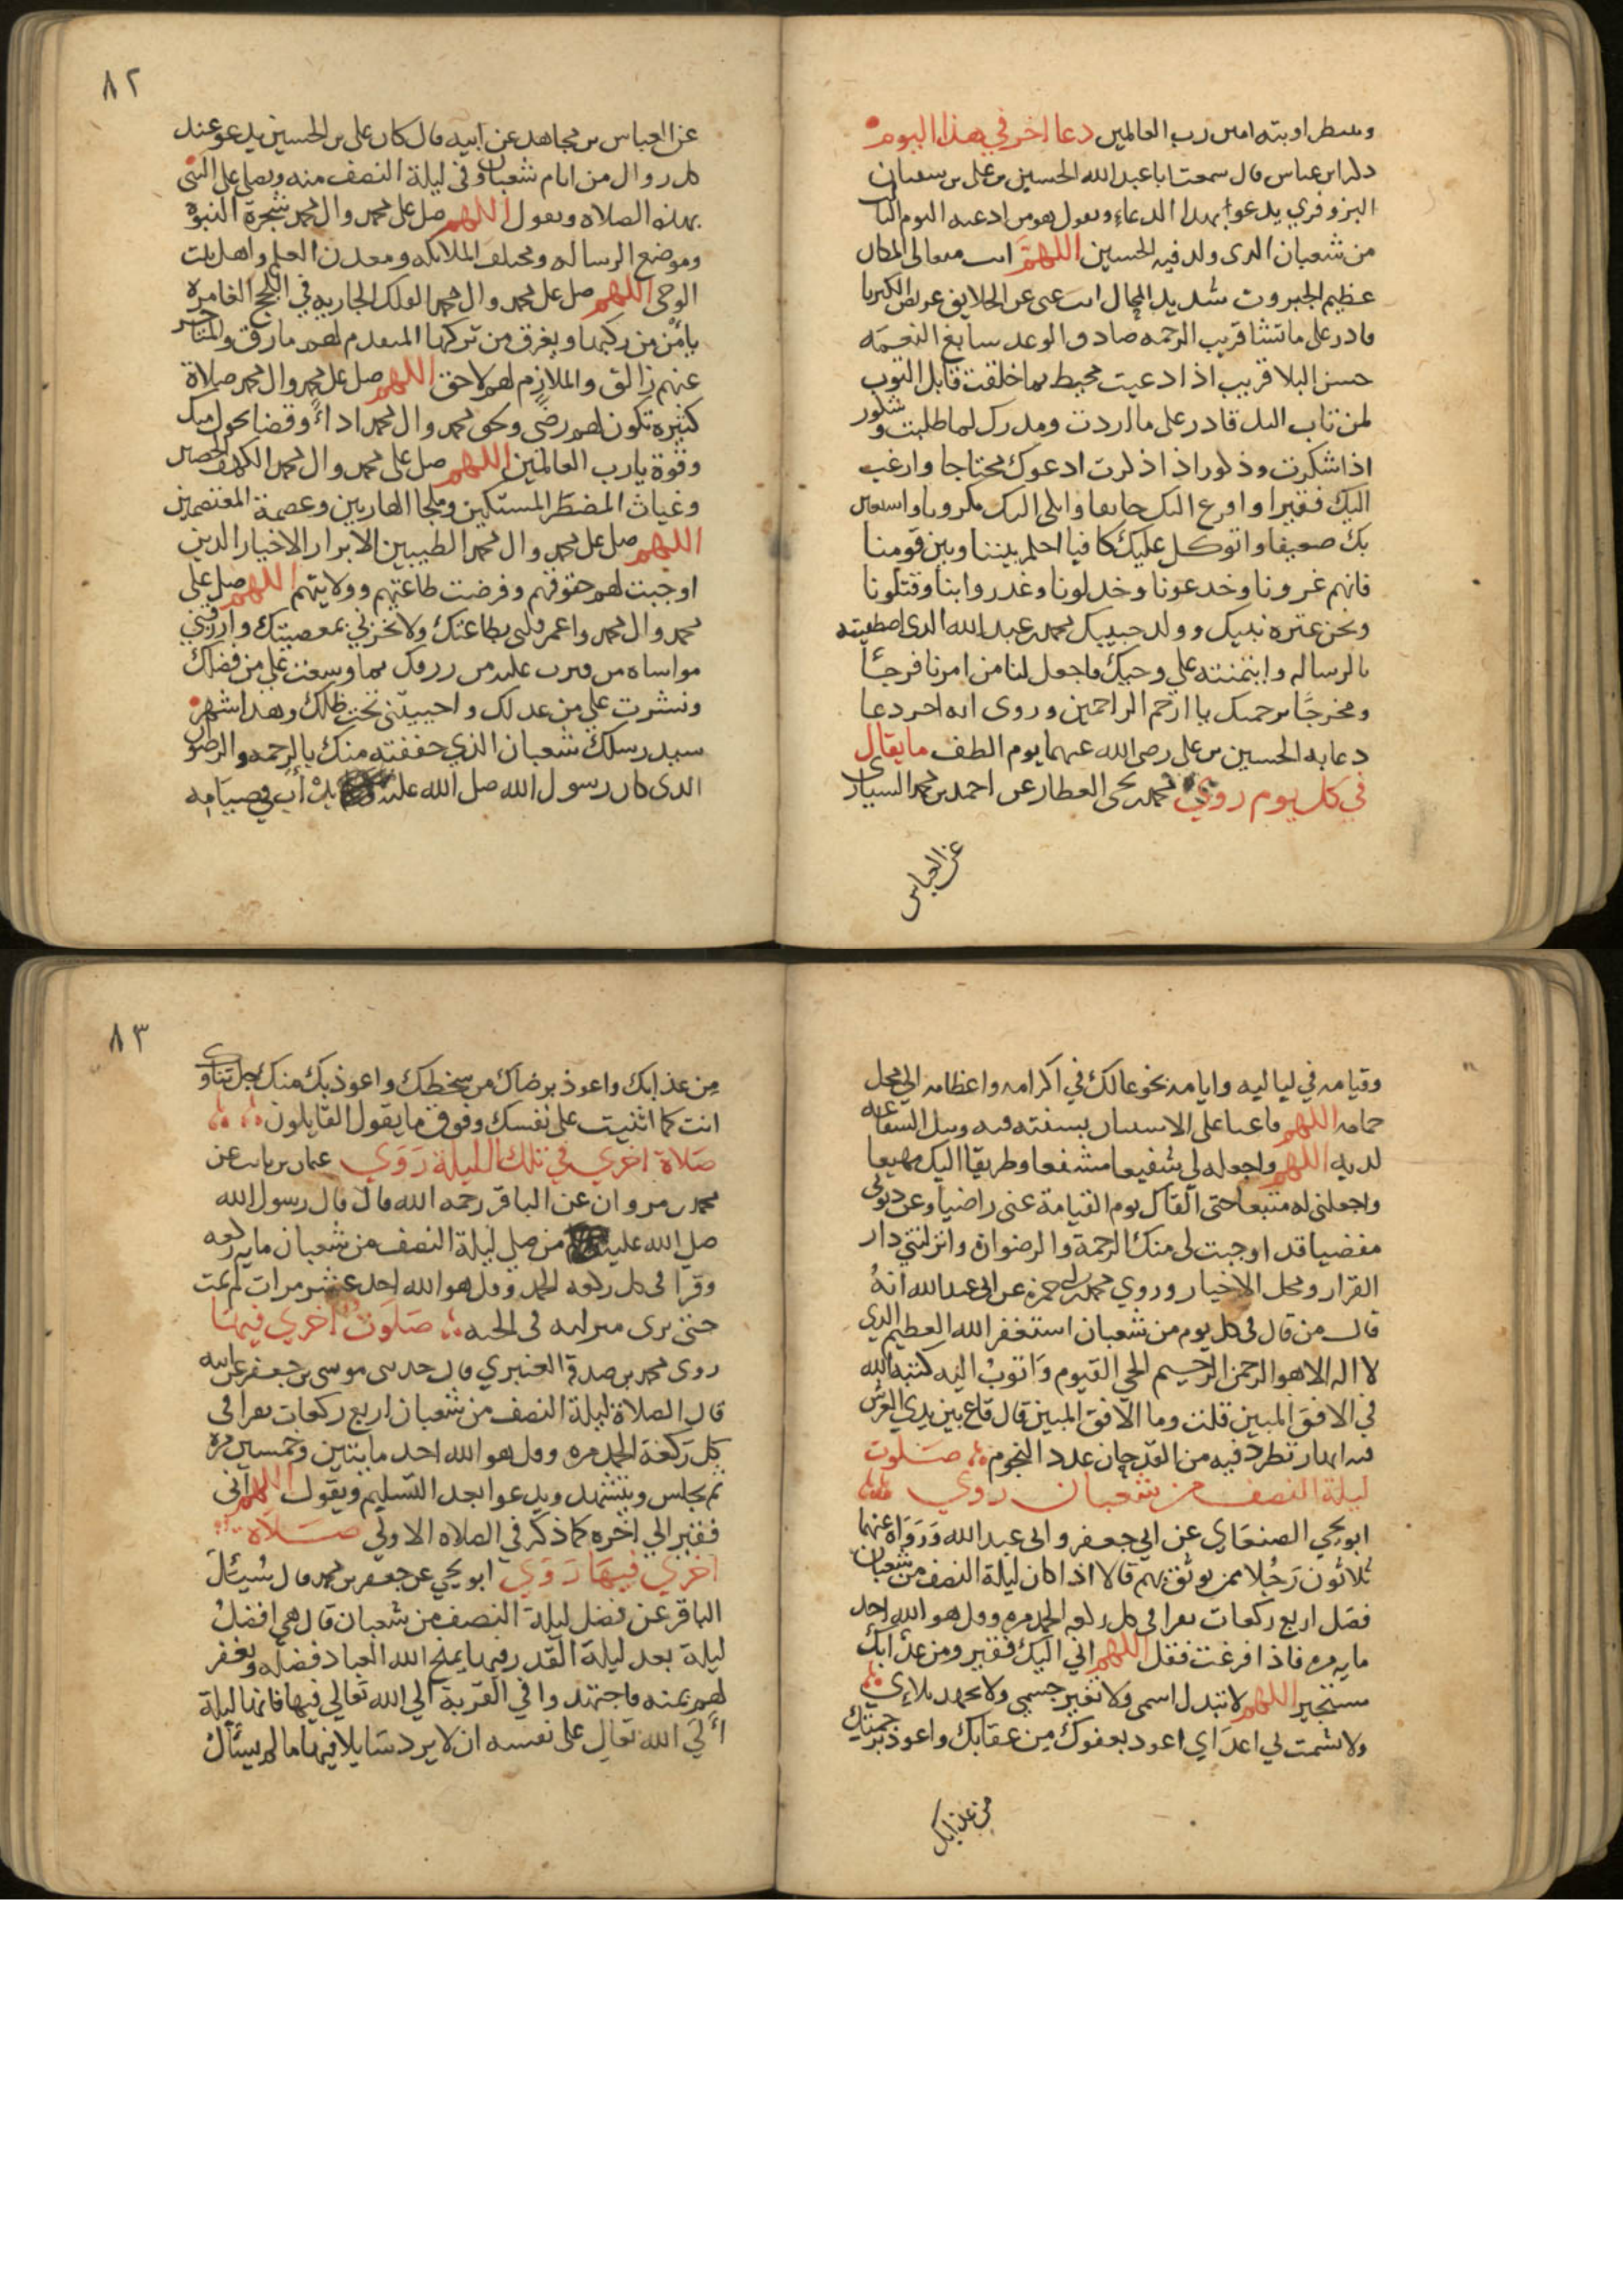 وننتطر اوبته امين رب العالمين دعا اخر في هذا اليوم
ذكر ابن عباس قال سمعت ابا عبد الله الحسين بن علي بن سفيان
البزوفري يدعوا بهدا الدعاء ويقول هو من ادعيه اليوم الثالث
من شعبان الدى ولد فيه الحسين اللهم انت متعالى المكان
عظيم الجبروت شديد المحال انت غنى عن الخلايق عريض الكبريا
قادر على ما تشا قريب الرحمه صادق الوعد سابغ النعمه
حسن البلا قريب اذا دعيت محيط بما خلقت قابل التوب
لمن تاب اليك قادر على ما اردت ومدرك لما طلبت وشكور
اذا شكرت وذكور اذا ذكرت ادعوك محتاجا وارغب
اليك فقيرا وافزع اليك خايفا وابكى اليك مكروبا واستعين
بك ضعيفا واتوكل عليك كافيا احكم بيننا وبين قومنا
فانهم غرونا وخدعونا وخدلونا وغدروا بنا وقتلونا
ونحن عتره نبيك وولد حبيبك محمد بن عبد الله الدى اصطفيته
بالرساله وايتمنته علي وحيك فاجعل لنا من امرنا فرجا
ومخرجا برحمتك يا ارحم الراحمين وروى انه اخر دعا
دعا به الحسين بن على رضى الله عنهما يوم الطف ما يقال
في كل يوم روي محمد بن يحيى العطار عن احمد بن محمد السيارى
عن العباس
٨٢
عن العباس بن مجاهد عن ابيه قال كان على بن الحسين يدعو عند
كل زوال من ايام شعبان وفى ليلة النصف منه ويصلي علي النبي
بهذه الصلاه ويقول اللهم صل على محمد وال محمد شجرة النبوه
وموضع الرساله ومختلف الملائكه ومعدن العلم واهل بيت
الوحى اللهم صل على محمد وال محمد الفلك الجاريه في اللجج الغامره
يامن من ركبها ويغرق من تركها المتقدم لهم مارق والمتاخر
عنهم زالق والملازم لهم لاحق اللهم صل على محمد وال محمد صلاة
كثيره تكون لهم رضى وبحق محمد وال محمد اداء وقضا بحول منك
وقوة يا رب العالمين اللهم صل على محمد وال محمد الكهف الحصين
وغياث المضطر المستكين وملجا الهاربين وعصمة المعتصمين
اللهم صل على محمد وال محمد الطيبين الابرار الاخيار الذين
اوجبت لهم حقوقهم وفرضت طاعتهم وولايتهم اللهم صل على
محمد وال محمد واعمر قلبى بطاعتك ولا تخزني بمعصيتك وارزقني
مواساه من قترت عليه من رزقك بما وسعت علي من فضلك
ونشرت علي من عدلك واحييتنى تحت ظلك وهدا شهر
سيد رسلك شعبان الذي حففته منك بالرحمه والرضوان
الدى كان رسول الله صلى الله عليه يدأب في صيامه
وقيامه في لياليه وايامه بخوعا لك في اكرامه واعظامه الى محل
حمامه اللهم فاعنا على الاستنان بسنته فيه ونيل الشفاعه
لديه اللهم واجعله لي شفيعا مشفعا وطريقا اليك مهيعا
واجعلنى له متبعا حتى القاك يوم القيامة عنى راضيا وعن ذنوبى
مغضيا قد اوجبت لى منك الرحمة والرضوان وانزلتني دار
القرار ومحل الاخيار وروي محمد بن ابى حمزه عن ابى عبد الله انه
قال من قال فى كل يوم من شعبان استغفر الله العظيم الدي
لا اله الا هو الرحمن الرحيم الحي القيوم واتوب اليه كتبه الله
في الافق المبين قلت وما الافق المبين قال قاع بين يدي العرش
فيه انهار تطرد فيه من القدحان عدد النجوم صلوت
ليلة النصف من شعبان روي
ابو يحيى الصنعاري عن ابي جعفر وابى عبد الله ورواه عنهما
ثلاثون رجلا ممن يوثق بهم قالا اذا كان ليلة النصف من شعبان
فصل اربع ركعات تقرا فى كل ركعه الحمد مره وقل هو الله احد
مايه مره فاذا فرغت فقل اللهم اني اليك فقير ومن عذابك
مستجير اللهم لا تبدل اسمى ولا تغير جسمي ولا تجهد بلاءي
ولا تشمت بي اعداي اعوذ بعفوك من عقابك واعوذ برحمتك
من عذابك
٨٣
من عذابك واعوذ برضاك من سخطك واعوذ بك منك جل ثناوك
انت كما اثنيت على نفسك وفوق ما يقول القايلون
صلاة اخري في تلك الليلة روي عمار بن ثابت عن
محمد بن مروان عن الباقر رحمه الله قال قال رسول الله
صلى الله عليه من صلى ليلة النصف من شعبان مايه ركعه
وقرا فى كل ركعه الحمد وقل هو الله احد عشر مرات لم يمت
حتى يرى منزله فى الجنه صلوت اخري فيها
روى محمد بن صدقة العنبري قال حدثنى موسى بن جعفر عن ابيه
قال الصلاة ليلة النصف من شعبان اربع ركعات تقرا فى
كل ركعة الحمد مره وقل هو الله احد مايتين وخمسين مره
ثم يجلس ويتشهد ويدعوا بعد التسليم ويقول اللهم انى
فقير الى اخره كما ذكر في الصلاه الاولى صلاه
اخري فيها روي ابو يحيى عن جعفر بن محمد قال سئيل
الباقر عن فضل ليلة النصف من شعبان قال هي افضل
ليلة بعد ليلة القدر فيها يمنح الله العباد فضله ويغفر
لهم بمنه فاجتهدوا في القربة الي الله تعالي فيها فانها ليلة
الى الله تعالى على نفسه ان لا يرد سايلا فيها ما لم يسئال